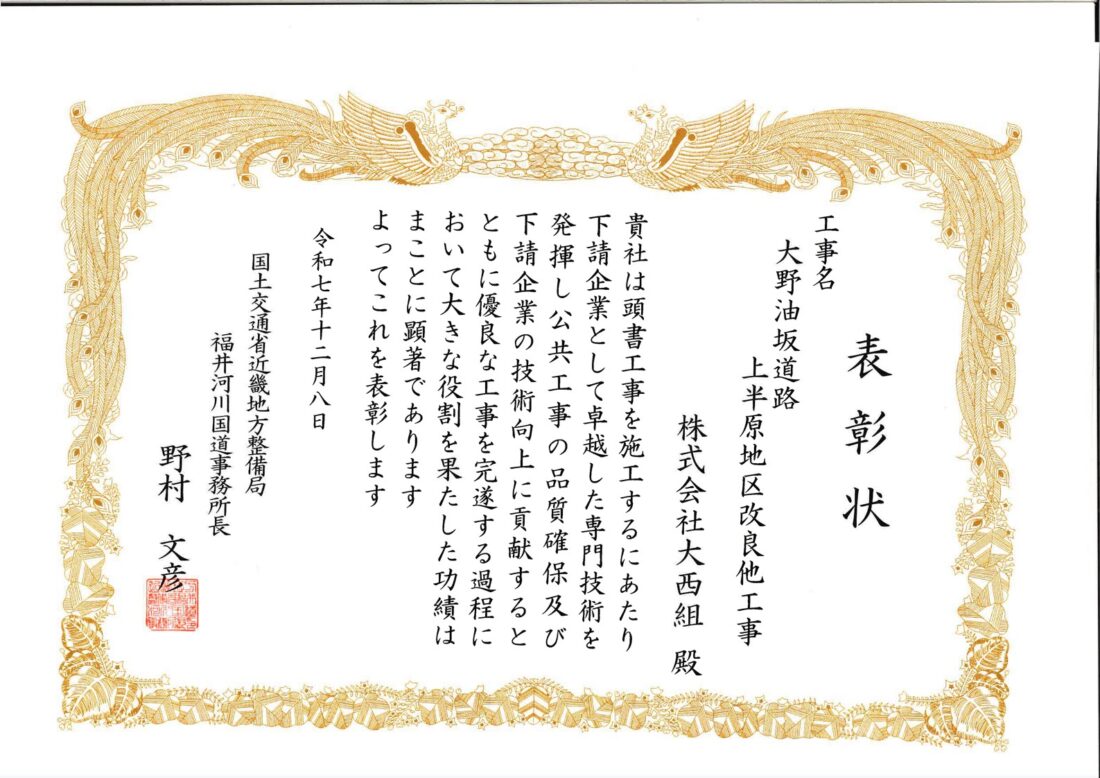 表彰状
工事名
大野油坂道路
上半原地区改良他工事
株式会社大西組 殿
貴社は頭書工事を施工するにあたり
下請企業として卓越した専門技術を
発揮し公共工事の品質確保及び
下請企業の技術向上に貢献すると
ともに優良な工事を完遂する過程に
おいて大きな役割を果たした功績は
まことに顕著であります
よってこれを表彰します
令和七年十二月八日
国土交通省近畿地方整備局
福井河川国道事務所長
野村 文彦